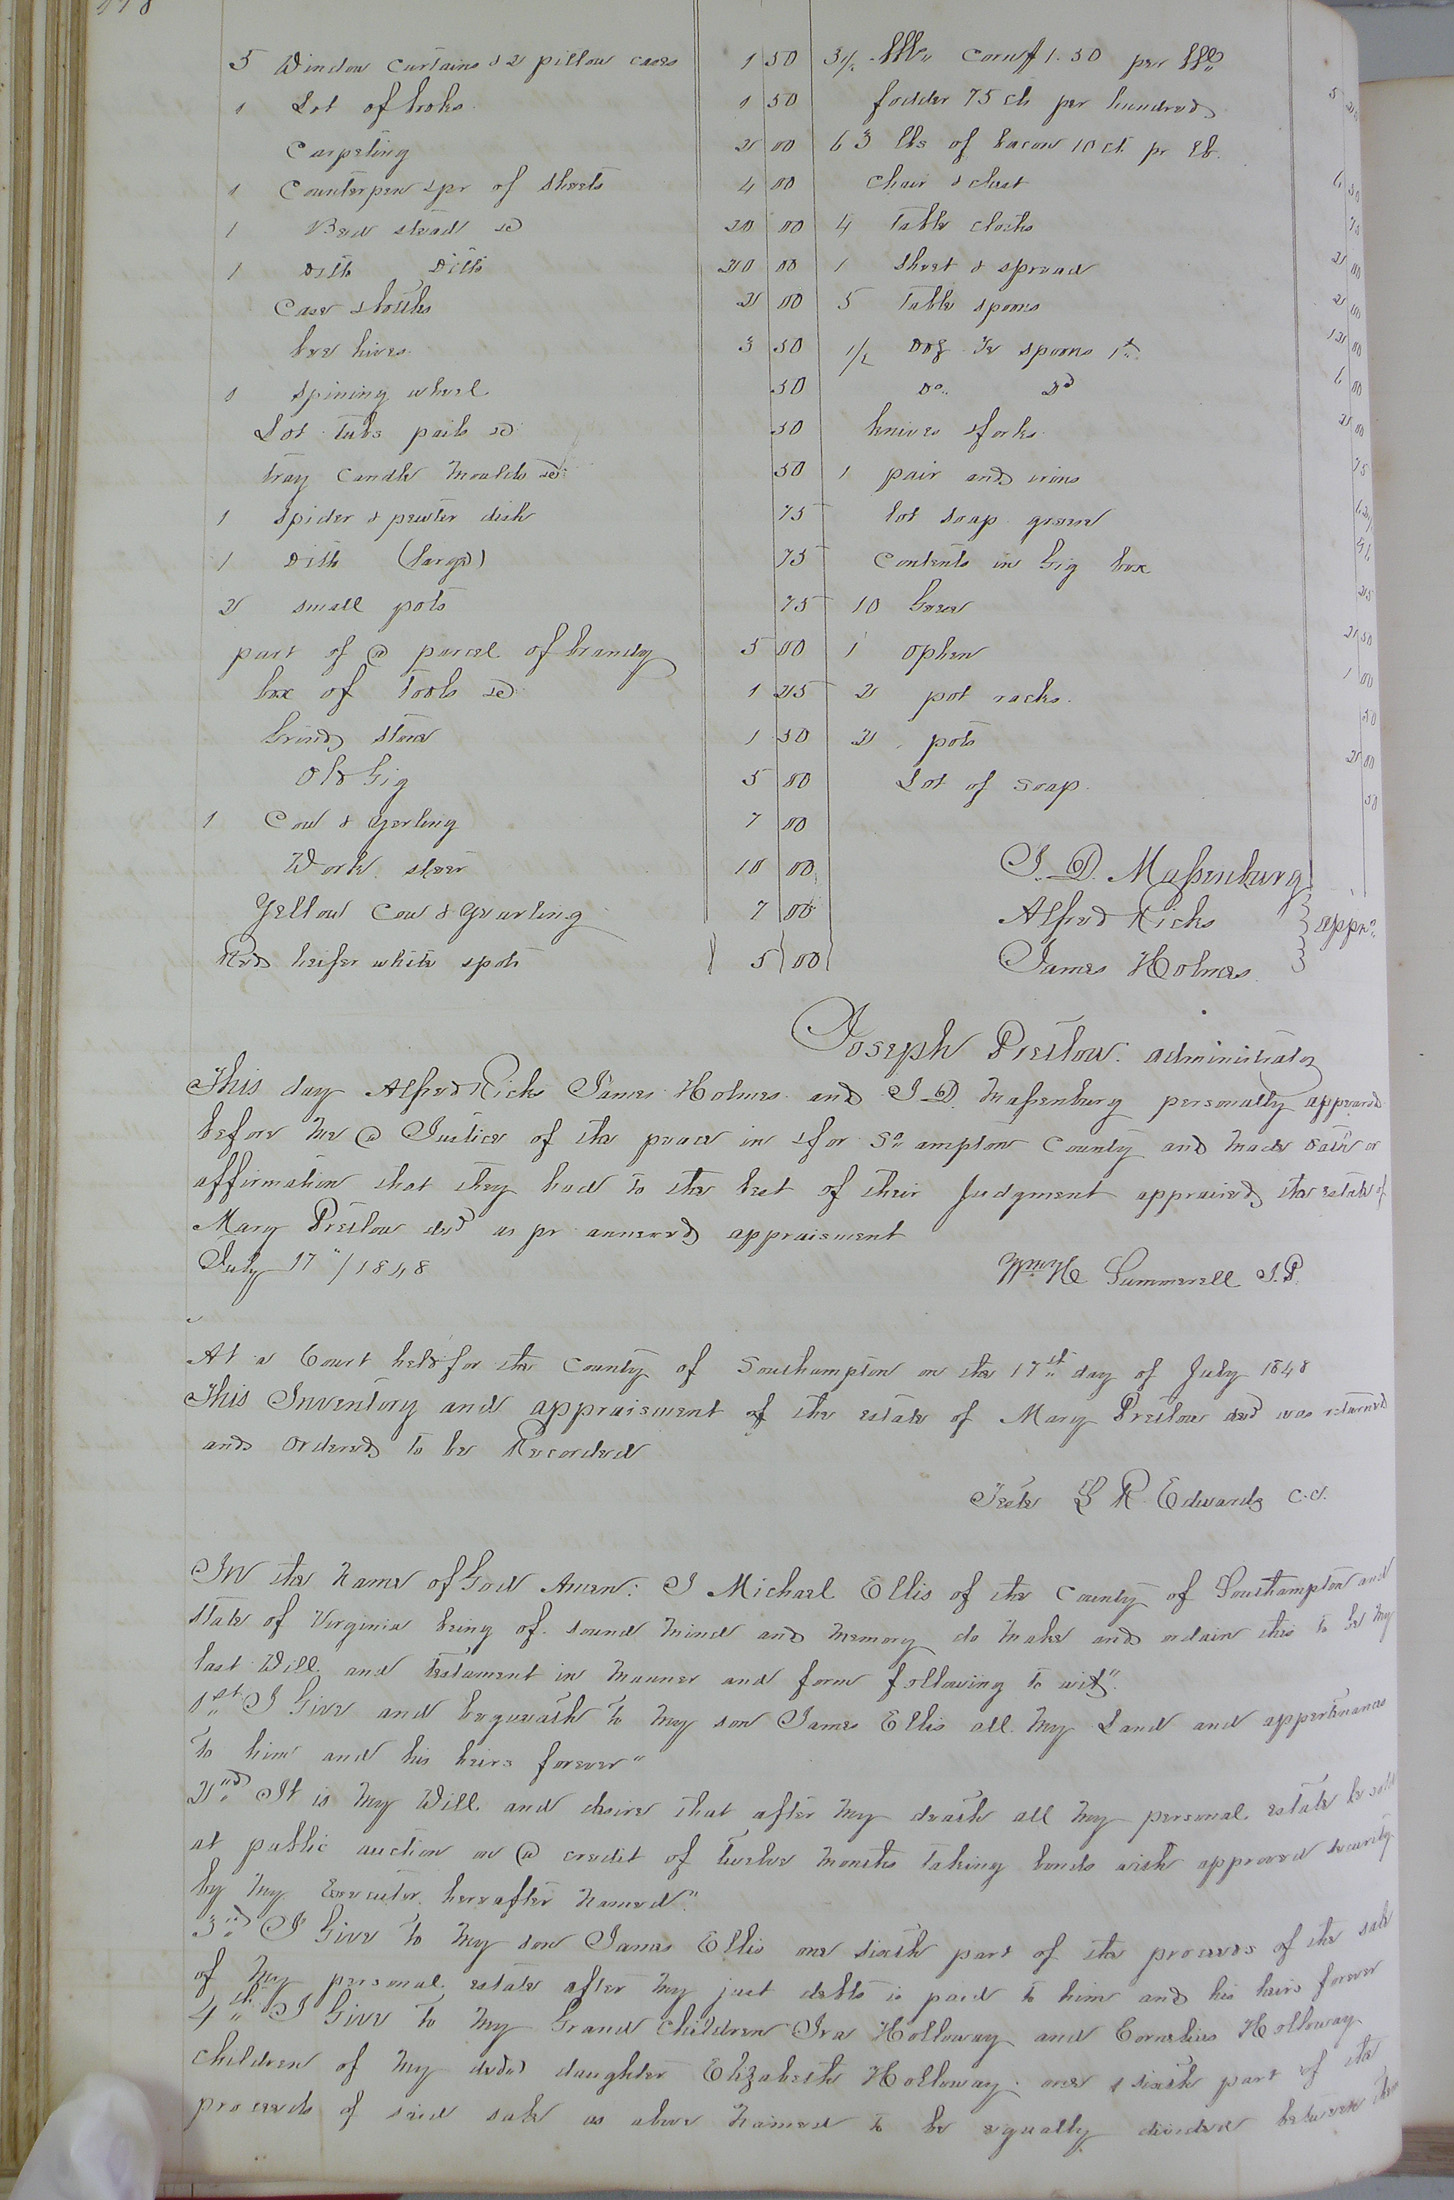 5 Window Curtains & 2 pillow cases 1 50
1 Lot of books 1 50
Carpeting 2 00
1 Counterpen & pr of Sheets 4 00
1 Bed stead &c 20 00
1 Ditto Ditto 20 00
Case & bottles 2 00
bee hives 3 50
1 Spining wheel 50
Lot Tubs pails &c 50
Tray Candle Moulds &c 50
1 Spider & pewter dish 75
1 Ditto (Large) 75
2 small pots 75
part of a parcel of brandy 5 00
box of Tools &c 1 25
Grind Stone 1 50
Old Gig 5 00
1 Cow & Yerling 7 00
Work steer 10 00
Yellow Cow & Yearling 7 00
Red heifer white spots 5 00
3½ bbls Corn 1.50 per bbl 5 25
fodder 75 cts per hundred
63 lbs of bacon 10 ct pr lb. 6 30
Chair & chest 75
4 Table cloths 2 00
1 Sheet & spread 2 00
5 Table spoons 12 00
1/2 Doz Te spoons 1st 6 00
Do 2d 2 00
knives & forks 75
1 pair and irons
Lot soap grease
Contents in Gig box 25
10 Geese 2 50
1 ophen 1 00
2 pot racks 50
2 pots 2 00
Lot of soap 50
J. D. Massenburg
Alfred Ricks apprs
James Holmes
Joseph Pretlow administrator
This day Alfred Ricks James Holmes and J D. Massenburg personally appeared
before me a Justice of the peace in & for So ampton County and made oath or
affirmation that they had to the best of their Judgment appraised the estate of
Mary Pretlow decd as pr annexed appraisment
July 17" / 1848 Wm H Summerell J.P.
At a Court held for the County of Southampton on the 17th day of July 1848
This Inventory and appraisment of the estate of Mary Pretlow decd was returned
and Ordered to be Recorded
Teste L R Edwards C.C.
In the Name of God Amen: I Michael Ellis of the County of Southampton and
State of Virginia being of sound mind and memory do make and ordain this to be My
last Will and Testament in Manner and form following to wit"
1st I Give and bequeath to my son James Ellis all My Land and appertenances
To him and his heirs forever"
2nd It is My Will and desire that after My death all My personal estate be sold
at public auction on a credit of twelve Months taking bonds with approved security
by My Executor hereafter Named"
3rd I Give to My son James Ellis one sixth part of the proceeds of the sale
of My personal estate after My just debts is paid to him and his heirs forever
4th I Give to My Grand Children Ira Holloway and Cornelius Holloway
Children of My decd daughter Elizabeth Holloway one sixth part of the
proceeds of said sale as above Named to be equally divided between them